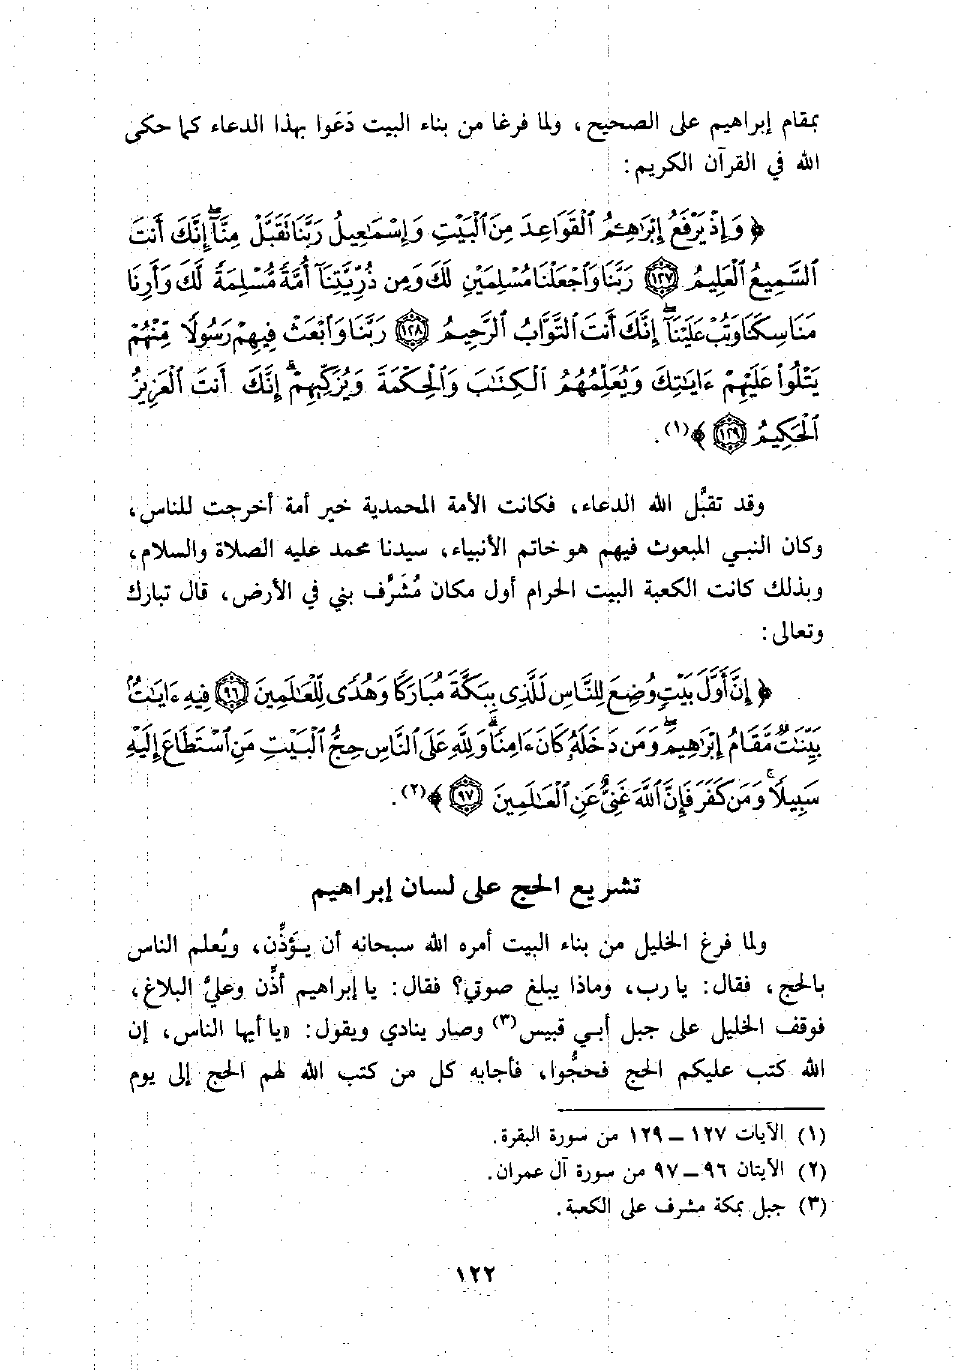 بمقام إبراهيم على الصحيح، ولما فرغا من بناء البيت دَعَوا بهذا الدعاء كما حكى
الله في القرآن الكريم:
﴿ وَإِذْ يَرْفَعُ إِبْرَٰهِۦمُ ٱلْقَوَاعِدَ مِنَ ٱلْبَيْتِ وَإِسْمَـٰعِيلُ رَبَّنَا تَقَبَّلْ مِنَّآ ۖ إِنَّكَ أَنتَ
ٱلسَّمِيعُ ٱلْعَلِيمُ ﴿١٢٧﴾ رَبَّنَا وَٱجْعَلْنَا مُسْلِمَيْنِ لَكَ وَمِن ذُرِّيَّتِنَآ أُمَّةً مُّسْلِمَةً لَّكَ وَأَرِنَا
مَنَاسِكَنَا وَتُبْ عَلَيْنَآ ۖ إِنَّكَ أَنتَ ٱلتَّوَّابُ ٱلرَّحِيمُ ﴿١٢٨﴾ رَبَّنَا وَٱبْعَثْ فِيهِمْ رَسُولًا مِّنْهُمْ
يَتْلُوا۟ عَلَيْهِمْ ءَايَـٰتِكَ وَيُعَلِّمُهُمُ ٱلْكِتَـٰبَ وَٱلْحِكْمَةَ وَيُزَكِّيهِمْ ۚ إِنَّكَ أَنتَ ٱلْعَزِيزُ
ٱلْحَكِيمُ ﴿١٢٩﴾ ﴾(١).
وقد تقبَّل الله الدعاء، فكانت الأمة المحمدية خير أمة أخرجت للناس،
وكان النبي المبعوث فيهم هو خاتم الأنبياء، سيدنا محمد عليه الصلاة والسلام،
وبذلك كانت الكعبة البيت الحرام أول مكان مُشَرَّف بني في الأرض، قال تبارك
وتعالى:
﴿ إِنَّ أَوَّلَ بَيْتٍ وُضِعَ لِلنَّاسِ لَلَّذِى بِبَكَّةَ مُبَارَكًا وَهُدًى لِّلْعَـٰلَمِينَ ﴿٩٦﴾ فِيهِ ءَايَـٰتٌۢ
بَيِّنَـٰتٌ مَّقَامُ إِبْرَٰهِيمَ ۖ وَمَن دَخَلَهُۥ كَانَ ءَامِنًا ۗ وَلِلَّهِ عَلَى ٱلنَّاسِ حِجُّ ٱلْبَيْتِ مَنِ ٱسْتَطَاعَ إِلَيْهِ
سَبِيلًا ۚ وَمَن كَفَرَ فَإِنَّ ٱللَّهَ غَنِىٌّ عَنِ ٱلْعَـٰلَمِينَ ﴿٩٧﴾ ﴾(٢).
تشريع الحج على لسان إبراهيم
ولما فرغ الخليل من بناء البيت أمره الله سبحانه أن يـؤذِّن، ويُعلم الناس
بالحج، فقال: يا رب، وماذا يبلغ صوتي؟ فقال: يا إبراهيم أذِّن وعليَّ البلاغ،
فوقف الخليل على جبل أبي قبيس(٣) وصار ينادي ويقول: «يا أيها الناس، إن
الله كتب عليكم الحج فحجُّوا، فأجابه كل من كتب الله لهم الحج إلى يوم
(١) الآيات ١٢٧ ــ ١٢٩ من سورة البقرة.
(٢) الآيتان ٩٦ ــ ٩٧ من سورة آل عمران.
(٣) جبل بمكة مشرف على الكعبة.
١٢٢